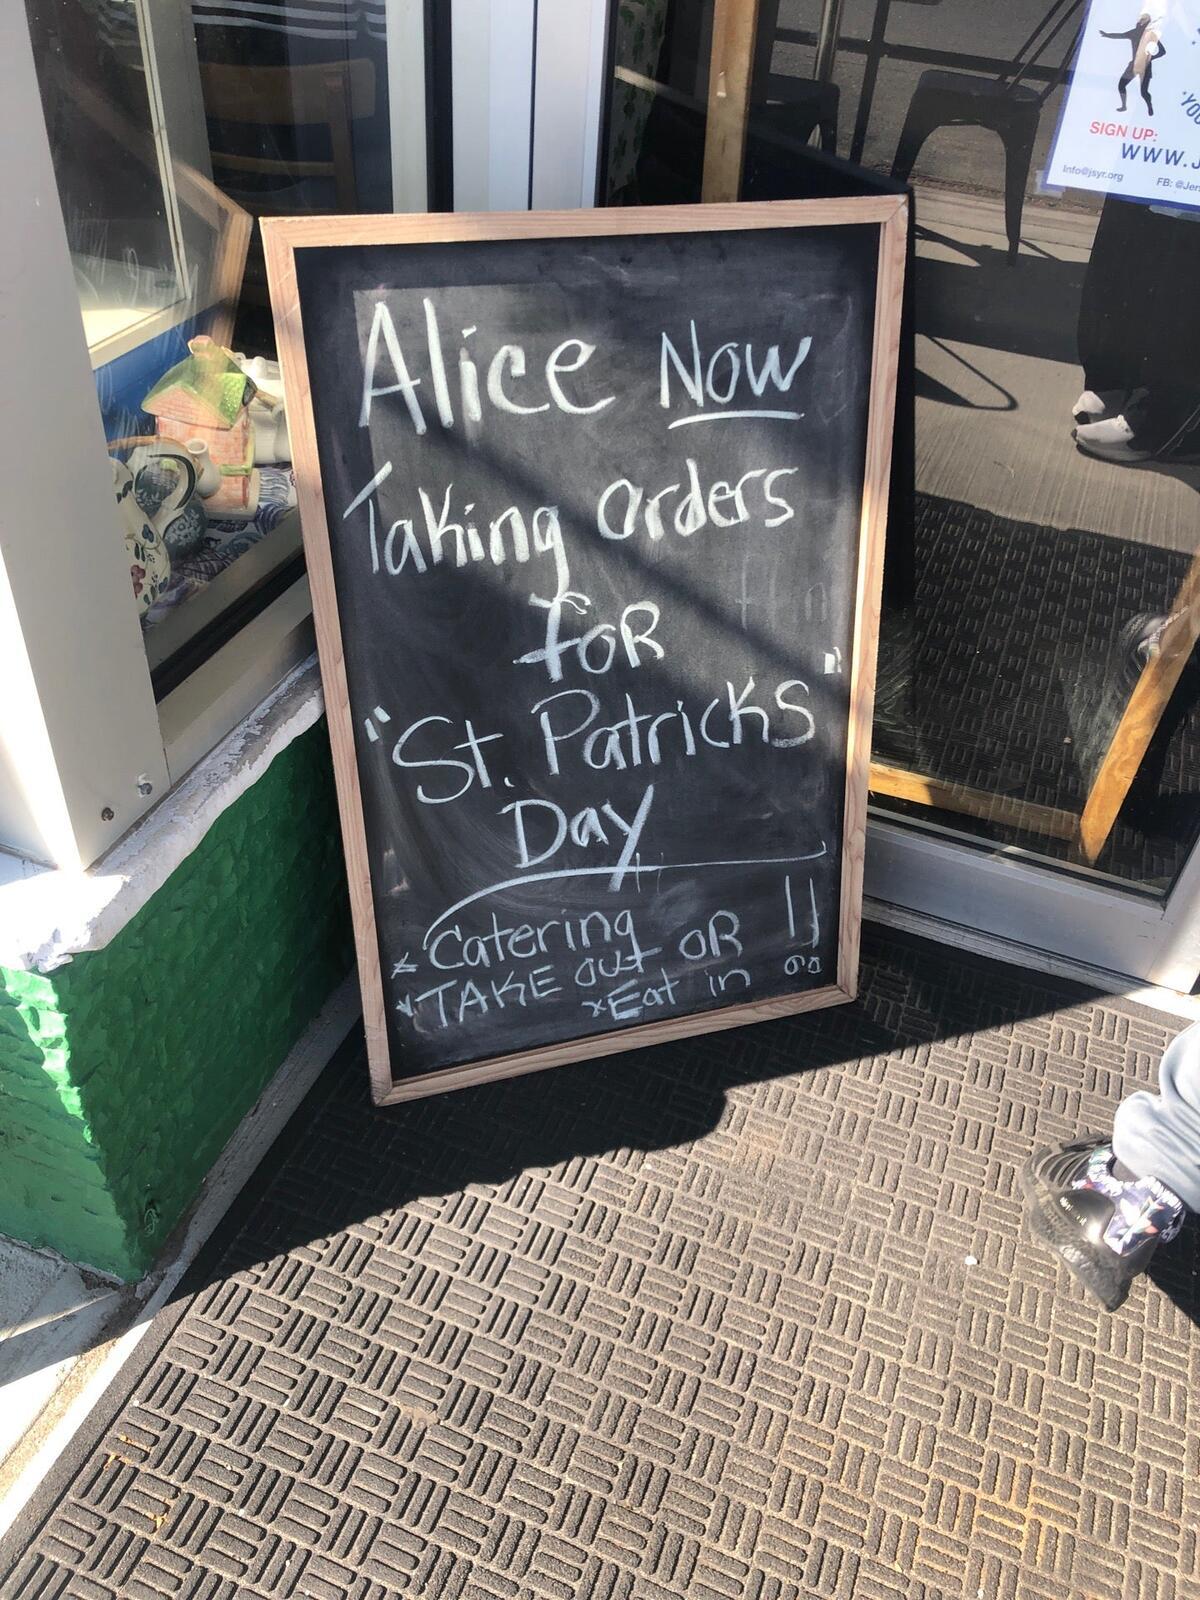 Alice Now
Taking orders
foR
"St. Patricks"
Day
* Catering
* TAKE out OR
* Eat in !!
SIGN UP:
WWW.J
Info@jsyr.org
FB: @Jers